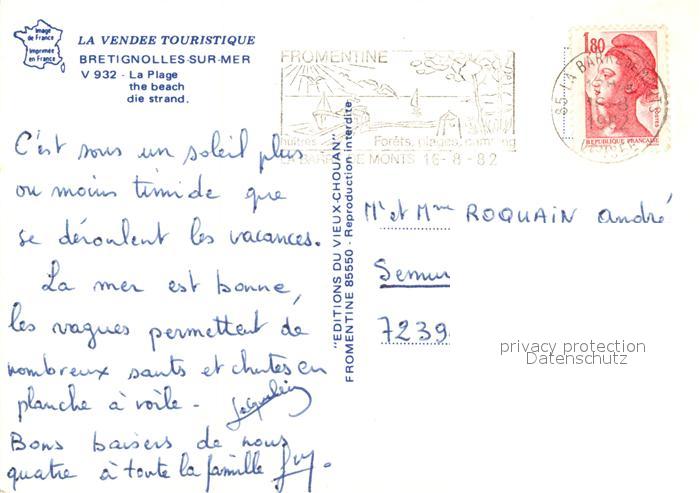 Image
de France
Imprimée
en France
LA VENDEE TOURISTIQUE
BRETIGNOLLES-SUR-MER
V 932 - La Plage
the beach
die strand.
FROMENTINE
huîtres
Forêts, plages, camping
LA BARRE DE MONTS 16-8-82
1,80
REPUBLIQUE FRANÇAISE
85 LA BARRE DE MONTS
16-8
1982
VENDEE
C'est sous un soleil plus
ou moins timide que
se déroulent les vacances.
La mer est bonne,
les vagues permettent de
nombreux sauts et chutes en
planche à voile -
Jacqueline
Bons baisers de nous
quatre à toute la famille Guy.
"EDITIONS DU VIEUX-CHOUAN"
FROMENTINE 85550 - Reproduction interdite
Mr et Mme ROQUAIN André
Semur
7239
privacy protection
Datenschutz